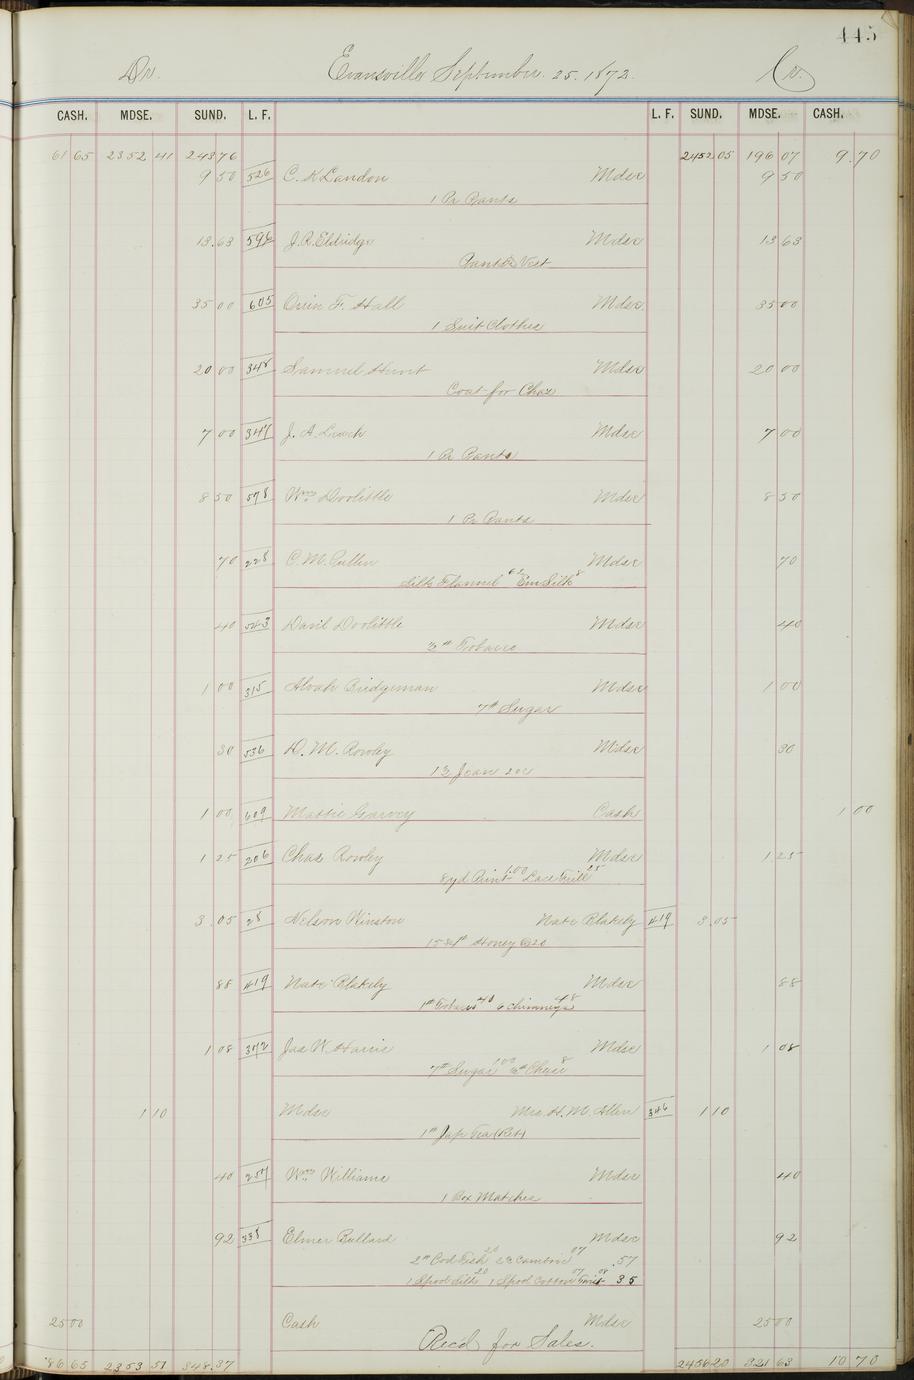 445
Dr. Evansville September. 25. 1872. Cr.
CASH. MDSE. SUND. L. F. L. F. SUND. MDSE. CASH.
61 65 2352 41 243 76 2452 05 196 07 9.70
9 50 526 C. K. Landon Mdse 9 50
1 Pr Pants
13.63 596 J. R. Eldridge Mdse 13 63
Pants & Vest
35 00 605 Orin F. Hall Mdse 35 00
1 Suit Clothes
20 00 348 Samuel Hunt Mdse 20 00
Coat for Chas
7 00 347 J. A. Mdse 7 00
1 Pr Pants
8 50 578 Wm Doolittle Mdse 8 50
1 Pr Pants
70 228 C. M. Pullen Mdse 70
Silk Flannel 62 Em Silk 8
40 543 David Doolittle Mdse 40
Tobacco
1 00 315 Alvah Bridgeman Mdse 1 00
7# Sugar
30 536 D. M. Rowley Mdse 30
1 00 609 Mattie Garvey Cash 1 00
1 25 206 Chas Rowley Mdse 1 25
8 yd Print 1.00 Lace Frill 25
3.05 28 Nelson Winston Nate Blakely 419 3.05
Honey @20
88 419 Nate Blakely Mdse 88
1# Tobacco 40 6 Chimneys 48
1 08 372 Jas W. Harris Mdse 1 08
7# Sugar 100 8
1 10 Mdse Mrs. H. M. Allen 346 1 10
1# Jap Tea (Ret)
40 257 Wm Williams Mdse 40
1 Box Matches
92 338 Elmer Bullard Mdse 92
2# Cod Fish 20 Cambric 07 .57
1 Spool Silk 20 1 Spool Cotton 07 08 35
25 00 Cash Mdse 25 00
Rec'd for Sales.
86 65 2353 51 348.37 2456 20 321 63 10 70